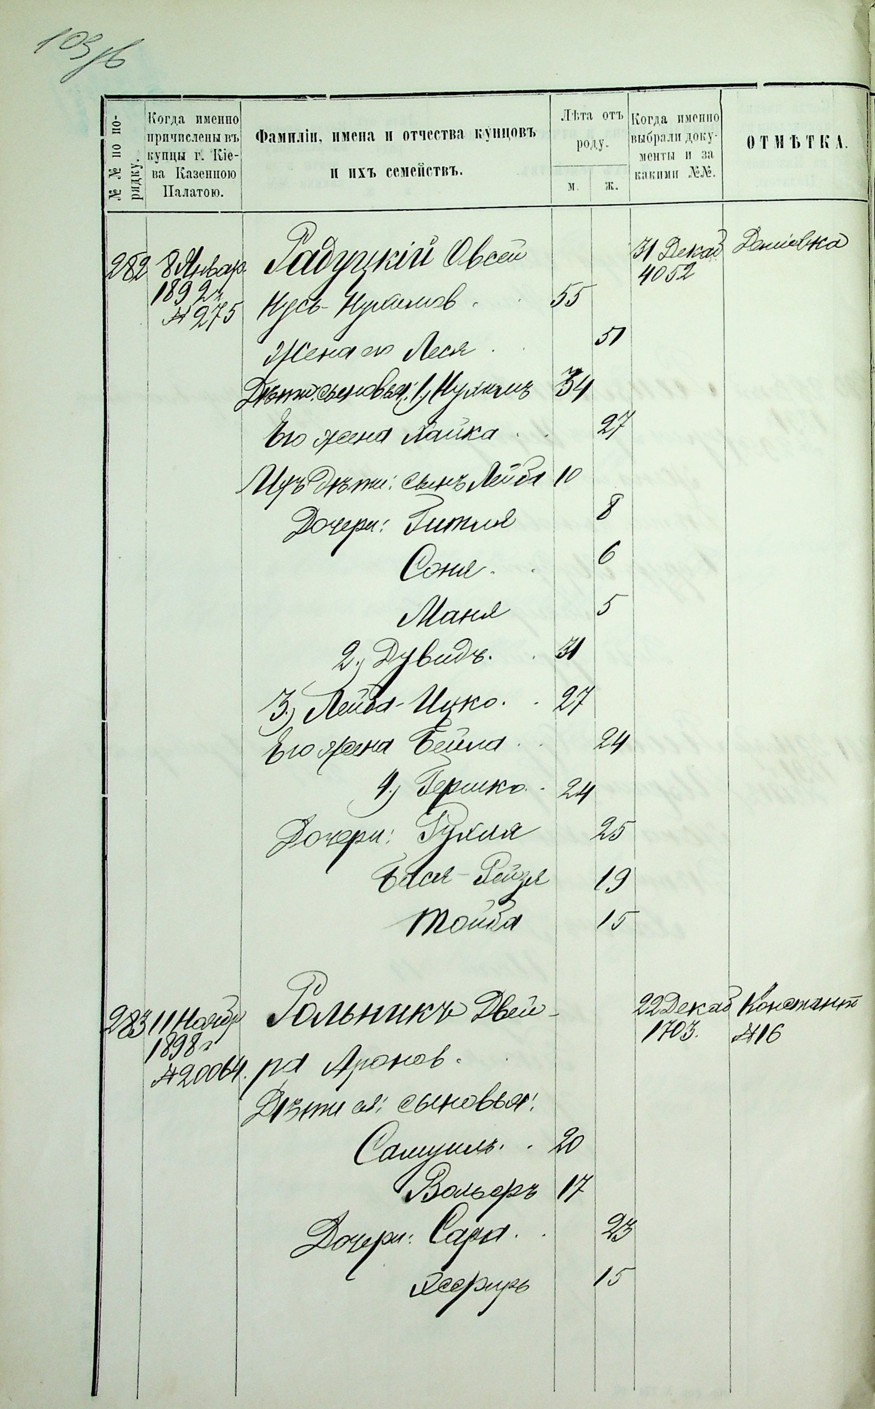 103 об
№№ по порядку.
Когда именно причислены въ купцы г. Кіева Казенною Палатою.
Фамиліи, имена и отчества купцовъ и ихъ семействъ.
Лѣта отъ роду.
м.
ж.
Когда именно выбрали документы и за какими №№.
ОТМѢТКА.
282 8 Январ. Радуцкій Овсей 31 Декаб Деміевка
1892 г. 4052
№ 275 Нусь-Нухимов 55
Жена его Леся 51
Дѣти: сыновья: 1) Нухимъ 34
Его жена Хайка 27
Ихъ дѣти: сынъ Лейба 10
Дочери: Гитля 8
Соня 6
Маня 5
2.) Дувидъ 31
3.) Лейба-Ицко 27
Его жена Бейла 24
4.) Гершко 24
Дочери: Рухля 25
Бася-Рейзя 19
Тойба 15
283 11 Ноябр Рольникъ Двей- 22 Декаб Констант
1898 г 1703. № 16
№ 20064. ра Аронов.
Дѣти ея: сыновья:
Самуилъ 20
Вольфъ 17
Дочери: Сара 23
Эсфирь 15